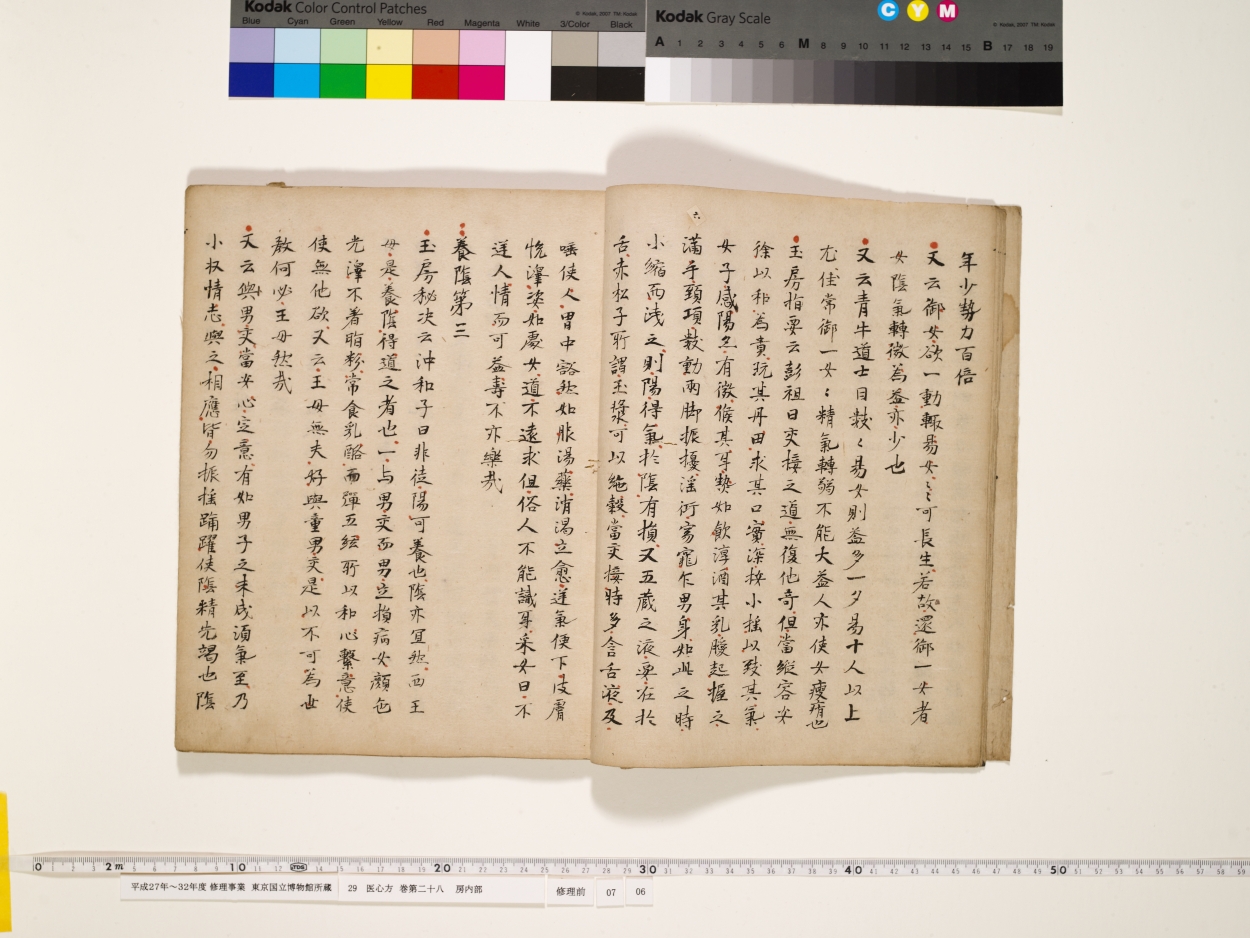 Kodak Color Control Patches
© Kodak, 2007 TM: Kodak
Blue Cyan Green Yellow Red Magenta White 3/Color Black
Kodak Gray Scale
C Y M
© Kodak, 2007 TM: Kodak
A 1 2 3 4 5 6 M 8 9 10 11 12 13 14 15 B 17 18 19
六
年少勢力百倍
又云御女欲一動輙易女〻可長生若故還御一女者
女陰氣轉微為益亦少也
又云青牛道士曰數〻易女則益多一夕易十人以上
尤佳常御一女〻精氣轉弱不能大益人亦使女瘦瘠也
玉房指要云彭祖曰交接之道無復他奇但當縱容安
徐以和為貴玩其丹田求其口實深按小搖以致其氣
女子感陽亦有徵候其耳熱如飲淳酒其乳腰起握之
滿手頸項數動兩脚振擾淫衍窈窕乍男身如此之時
小縮而淺之則陽得氣於陰有損又五蔵之液要在於
舌赤松子所謂玉漿可以絶穀當交接時多含舌液及
唾使人胃中豁然如服湯藥消渴立愈逆氣便下皮膚
悅澤姿如處女道不遠求但俗人不能識耳采女曰不
逆人情而可益壽不亦樂哉
養陰第三
玉房秘决云沖和子曰非徒陽可養也陰亦宜然西王
母是養陰得道之者也一与男交而男立損病女顏色
光澤不着脂粉常食乳酪而彈五絃所以和心繫意使
使無他欲又云王母無夫好與童男交是以不可為世
教何必王母然哉
又云與男交當安心定意有如男子之未成須氣至乃
小収情志與之相應皆勿振搖踊躍使陰精先竭也陰
0 1 2 3 4 5 6 7 8 9 10 11 12 13 14 15 16 17 18 19 20 21 22 23 24 25 26 27 28 29 30 31 32 33 34 35 36 37 38 39 40 41 42 43 44 45 46 47 48 49 50 51 52 53 54 55 56 57 58 59
2m
平成27年～32年度 修理事業 東京国立博物館所蔵
29 医心方 巻第二十八 房内部
修理前
07
06